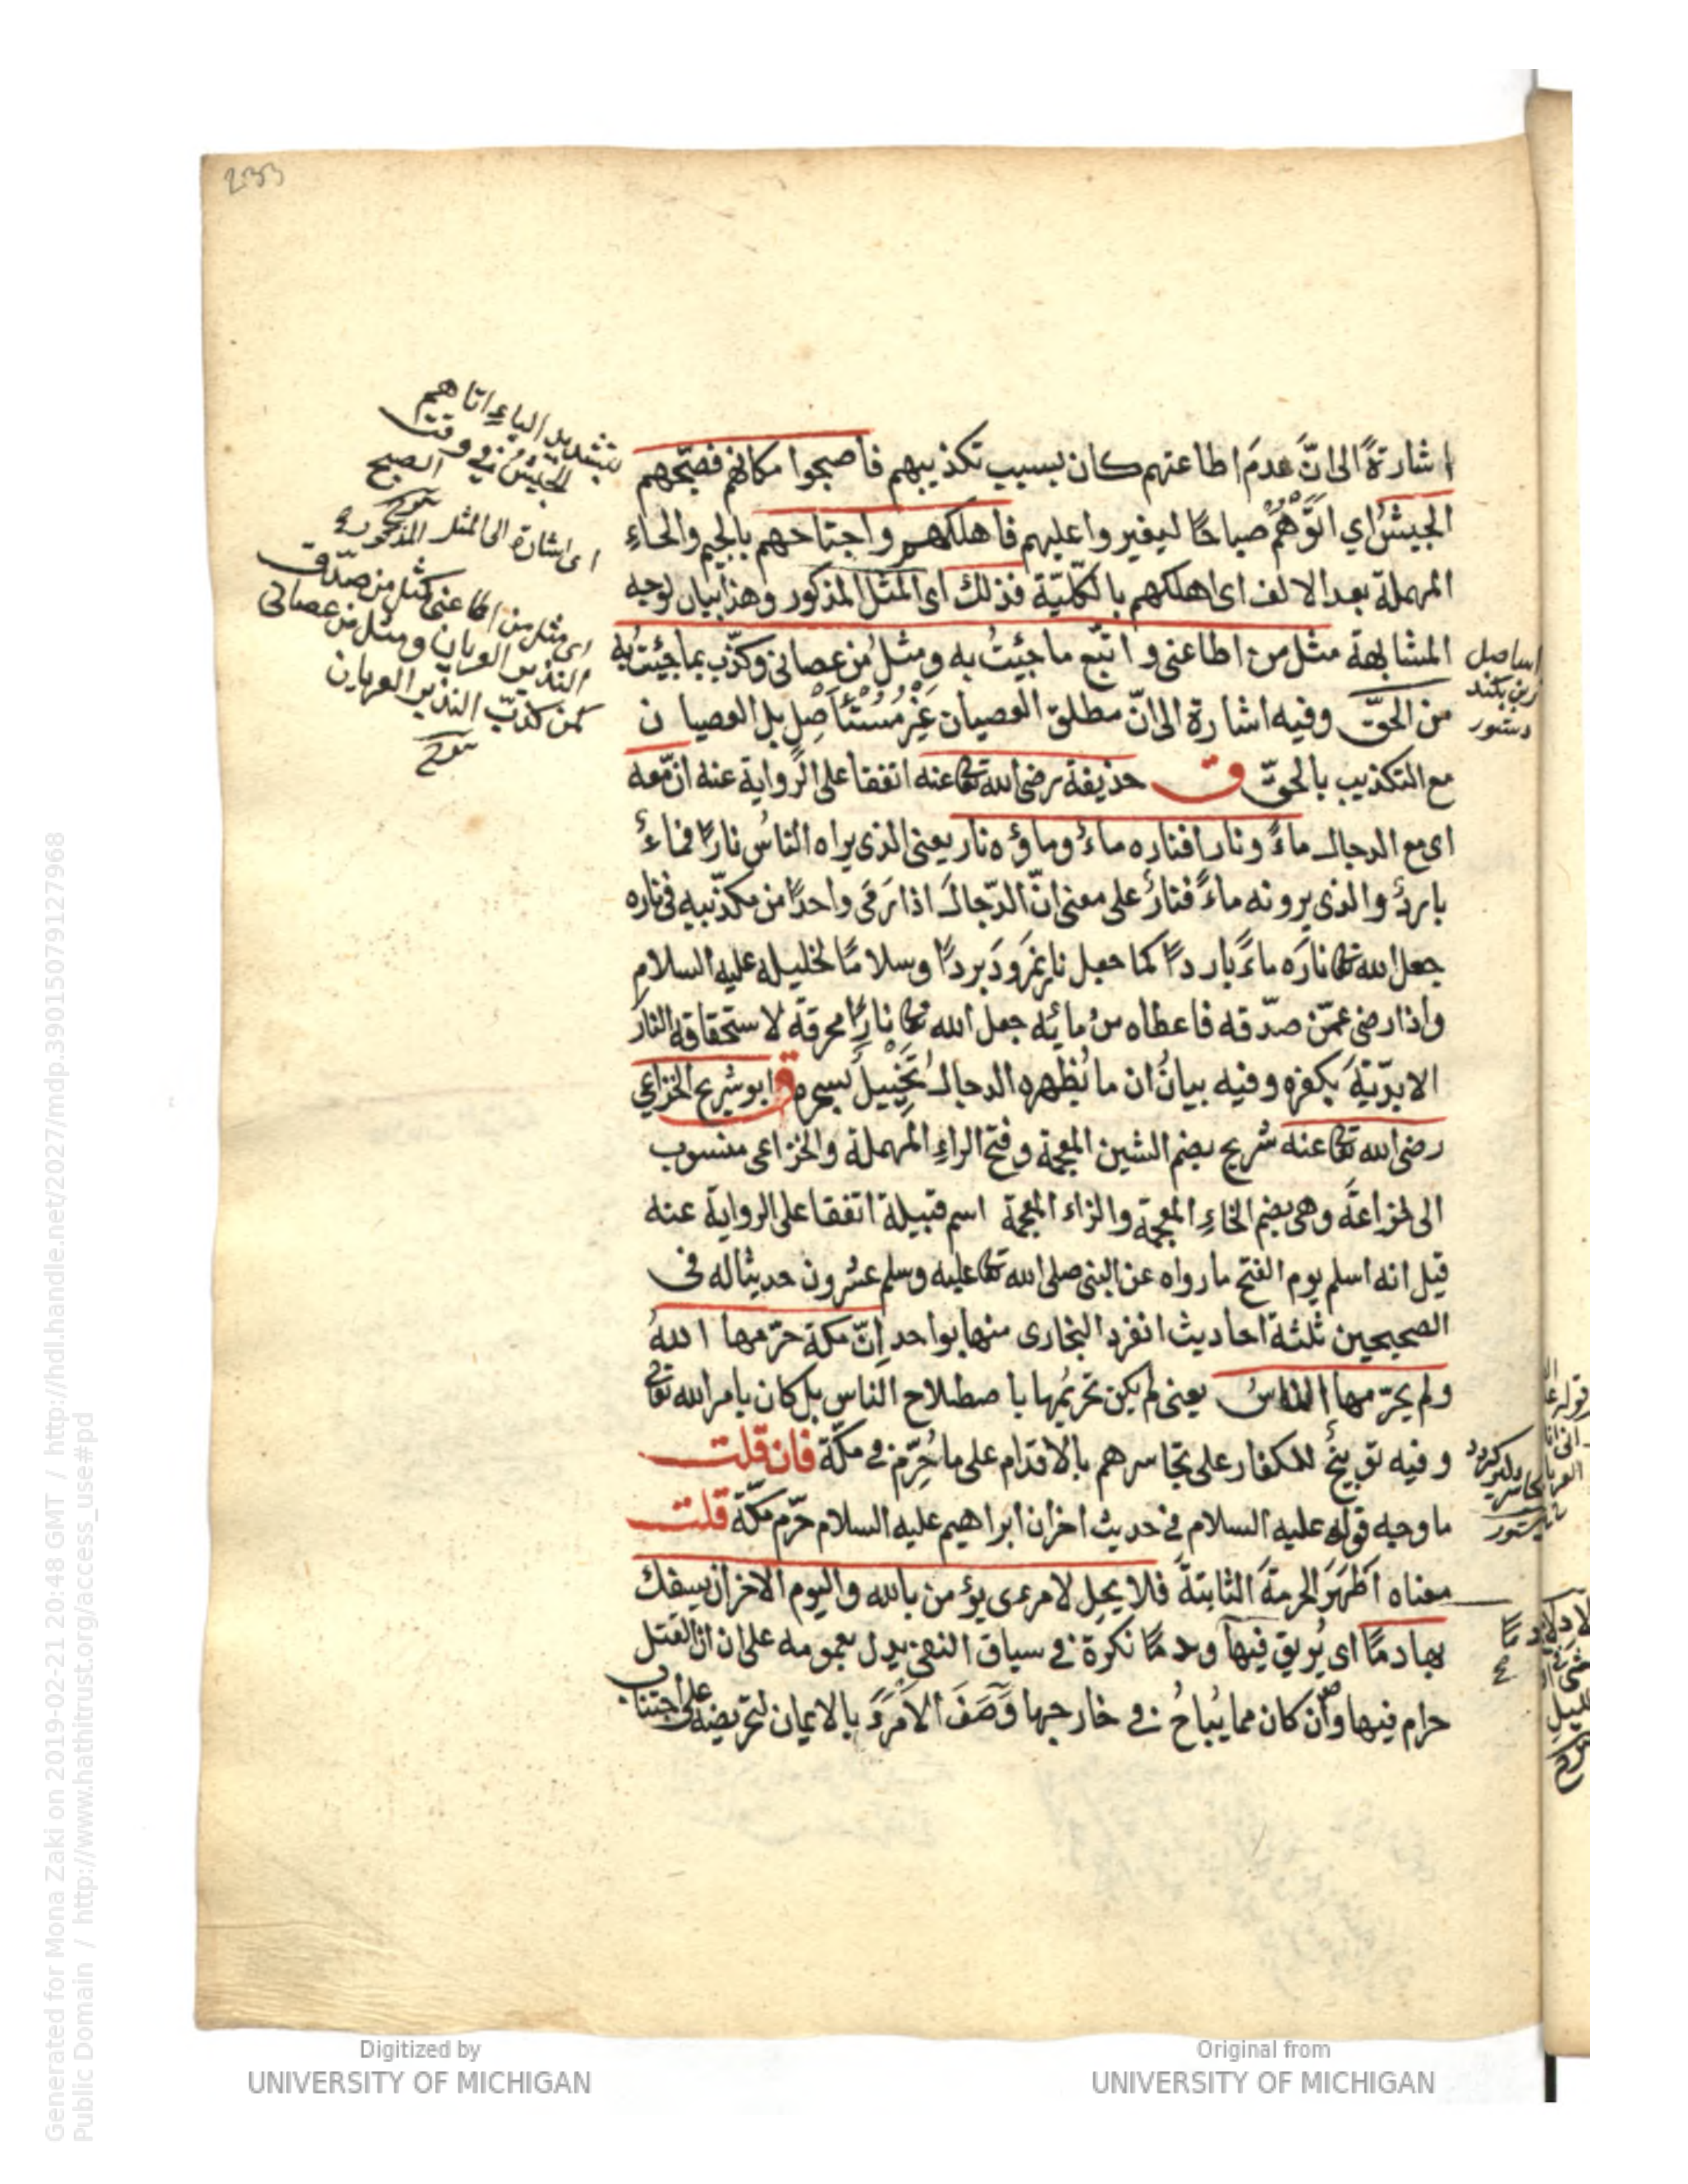 233
اشارةً الى انّ عدمَ اطاعتهم كان بسبب تكذيبهم فاصبحوا مكانهم فصبّحهم
الجيشُ اي اتَوْهُمْ صباحًا ليغيروا عليهم فاهلكهم واجتاحهم بالجيم والحاءِ
المهملة بعد الالف اى اهلكهم بالكلّيّة فذلك اى المثل المذكور وهذا بيان لوجه
المشابهة مثل من اطاعنى واتبّع ما جئتُ به ومثلُ من عصانى وكذّب بما جئتُ به
من الحقّ وفيه اشارة الى انّ مطلق العصيان غيْرُ مُسْتَأْصِلٍ بل العصيان
مع التكذيب بالحقّ ق حذيفة رضى الله تعا عنه اتفقا على الرواية عنه ان معه
اى مع الدجال ماءً ونارا فناره ماءٌ وماؤه نار يعنى الذى يراه الناسُ نارًا فماءٌ
باردٌ والذى يرونه ماءً فنارٌ على معنى انّ الدّجالَ اذا رَمَى واحدًا من مكذّبيه فى ناره
جعل الله تعا نارَه ماءً باردًا كما جعل نار نمرود بردًا وسلامًا لخليله عليه السلام
واذا رضى عمّن صدّقه فاعطاه من مائه جعل الله تعا نارًا محرقة لاستحقاقه النار
الابديّةَ بكفره وفيه بيانُ ان ما يُظهره الدجال تَخْيِيلٌ بسحره ق ابو شريح الخزاعي
رضى الله تعا عنه شريح بضم الشين المعجمة وفتح الراءِ المهملة والخزاعى منسوب
الى خزاعةَ وهى بضم الخاءِ المعجمة والزاء المعجمة اسم قبيلة اتفقا على الرواية عنه
قيل انه اسلم يوم الفتح ما رواه عن النبى صلى الله تعا عليه وسلم عشرون حديثا له فى
الصحيحين ثلثة احاديث انفرد البخارى منها بواحد اِنّ مكة حرّمها اللهُ
ولم يحرّمها الناسُ يعنى لم يكن تحريمُها باصطلاح الناس بل كان بامر الله تعالى
وفيه توبيخٌ للكفار على تجاسرهم بالاقدام على ما حُرِّم فى مكّة فان قلت
ما وجه قوله عليه السلام فى حديث اخر ان ابراهيم عليه السلام حرّم مكّة قلت
معناه اَظْهَرَ الحرمةَ الثابتةَ فلا يحل لامرءى يؤمن بالله واليوم الاخر ان يسفك
بها دمًا اى يُريق فيها ودمًا نكرة فى سياق النفى يدل بعمومه على ان القتل
حرام فيها وان كان مما يُباحُ فى خارجها وَصَفَ الامرءَ بالايمان لتحريضه على اجتناب
بتشديد الباءِ اتاهم
الجيش فى وقت
الصبح
اى اشارة الى المثل المذكور
اى مثل من اطاعنى كمثل من صدّق
النذير العريان ومثل من عصانى
كمن كذّب النذير العريان
دستور
Generated for Mona Zaki on 2019-02-21 20:48 GMT / http://hdl.handle.net/2027/mdp.39015079127968
Public Domain / http://www.hathitrust.org/access_use#pd
Digitized by
UNIVERSITY OF MICHIGAN
Original from
UNIVERSITY OF MICHIGAN